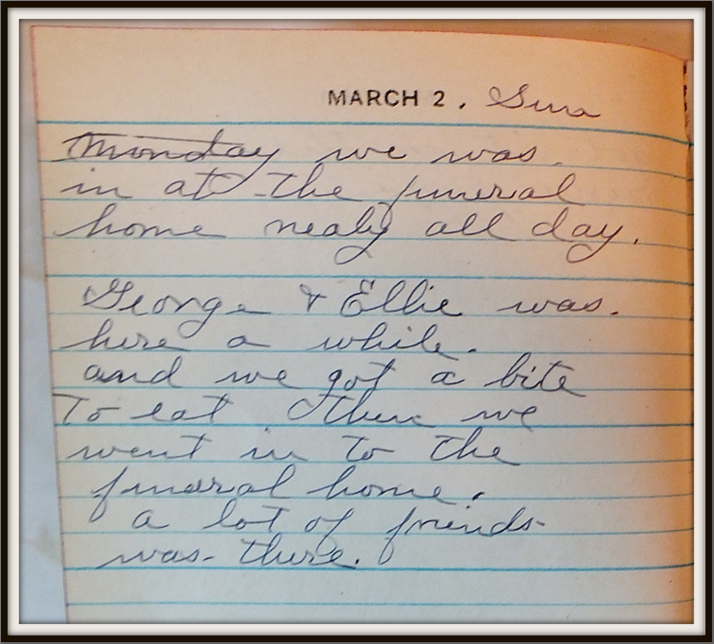 MARCH 2. Sun
Monday we was.
in at the funeral
home nealy all day.
George & Ellie was.
here a while.
and we got a bite
to eat then we
went in to the
funeral home.
a lot of friends
was there.